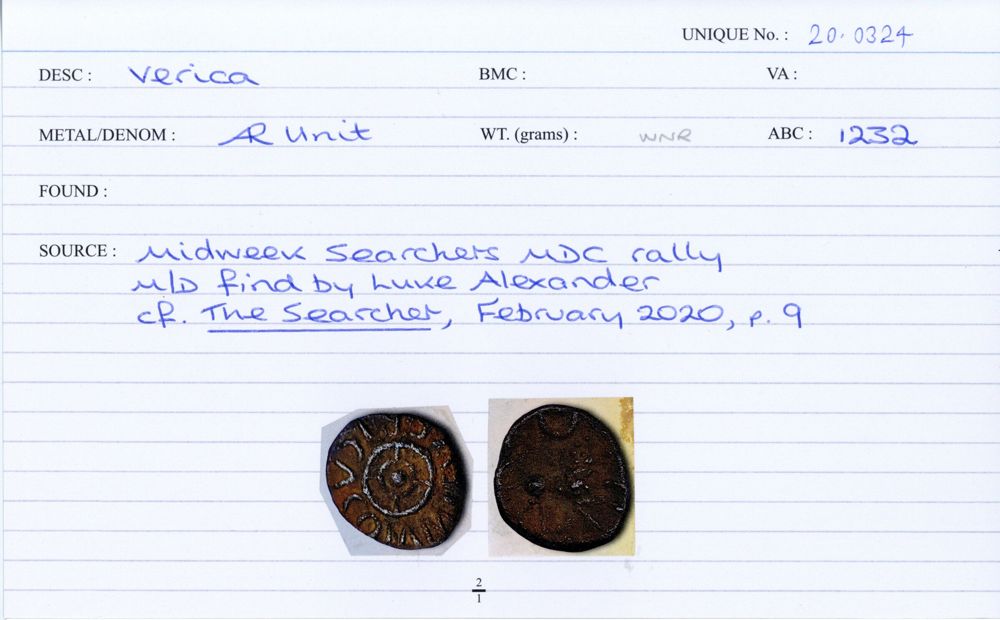 UNIQUE No. : 20.0324
DESC : Verica BMC : VA :
METAL/DENOM : AR Unit WT. (grams) : WNR ABC : 1232
FOUND :
SOURCE : Midweek Searchers MDC rally
M/D find by Luke Alexander
cf. The Searcher, February 2020, p. 9
2
1